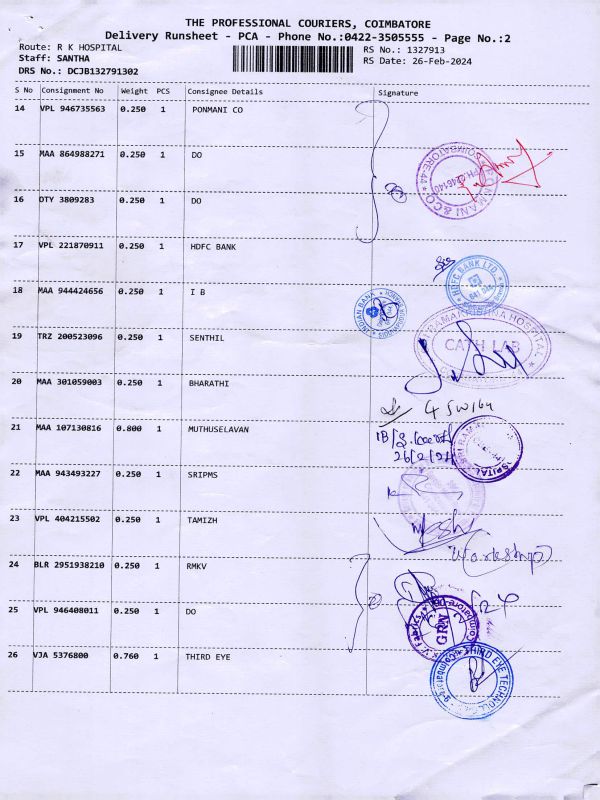 THE PROFESSIONAL COURIERS, COIMBATORE
Delivery Runsheet - PCA - Phone No.:0422-3505555 - Page No.:2
Route: R K HOSPITAL
RS No.: 1327913
Staff: SANTHA
RS Date: 26-Feb-2024
DRS No.: DCJB132791302
S No Consignment No Weight PCS Consignee Details Signature
14 VPL 946735563 0.250 1 PONMANI CO
15 MAA 864988271 0.250 1 DO
PONMANI & CO COIMBATORE-44
16 DTY 3809283 0.250 1 DO
17 VPL 221870911 0.250 1 HDFC BANK
HDFC BANK LTD.
18 MAA 944424656 0.250 1 I B
INDIAN BANK
19 TRZ 200523096 0.250 1 SENTHIL
HOSPITAL
CATH LAB
20 MAA 301059003 0.250 1 BHARATHI
21 MAA 107130816 0.800 1 MUTHUSELAVAN
26/2/24
HOSPITAL
22 MAA 943493227 0.250 1 SRIPMS
23 VPL 404215502 0.250 1 TAMIZH
24 BLR 2951938210 0.250 1 RMKV
25 VPL 946408011 0.250 1 DO
Fabrics
GRN
26 VJA 5376800 0.760 1 THIRD EYE
THIRD EYE